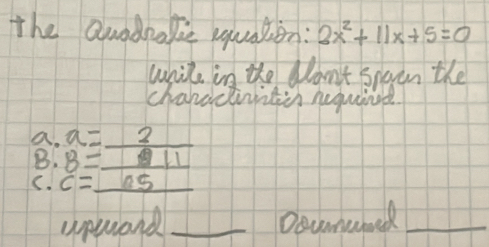 the Quadratic equation: 2x² + 11x + 5 = 0
write in the blank spaces the
characteristics required.
a. a = 2
B. B = 11
C. C = 5
upward ____ Downward ____